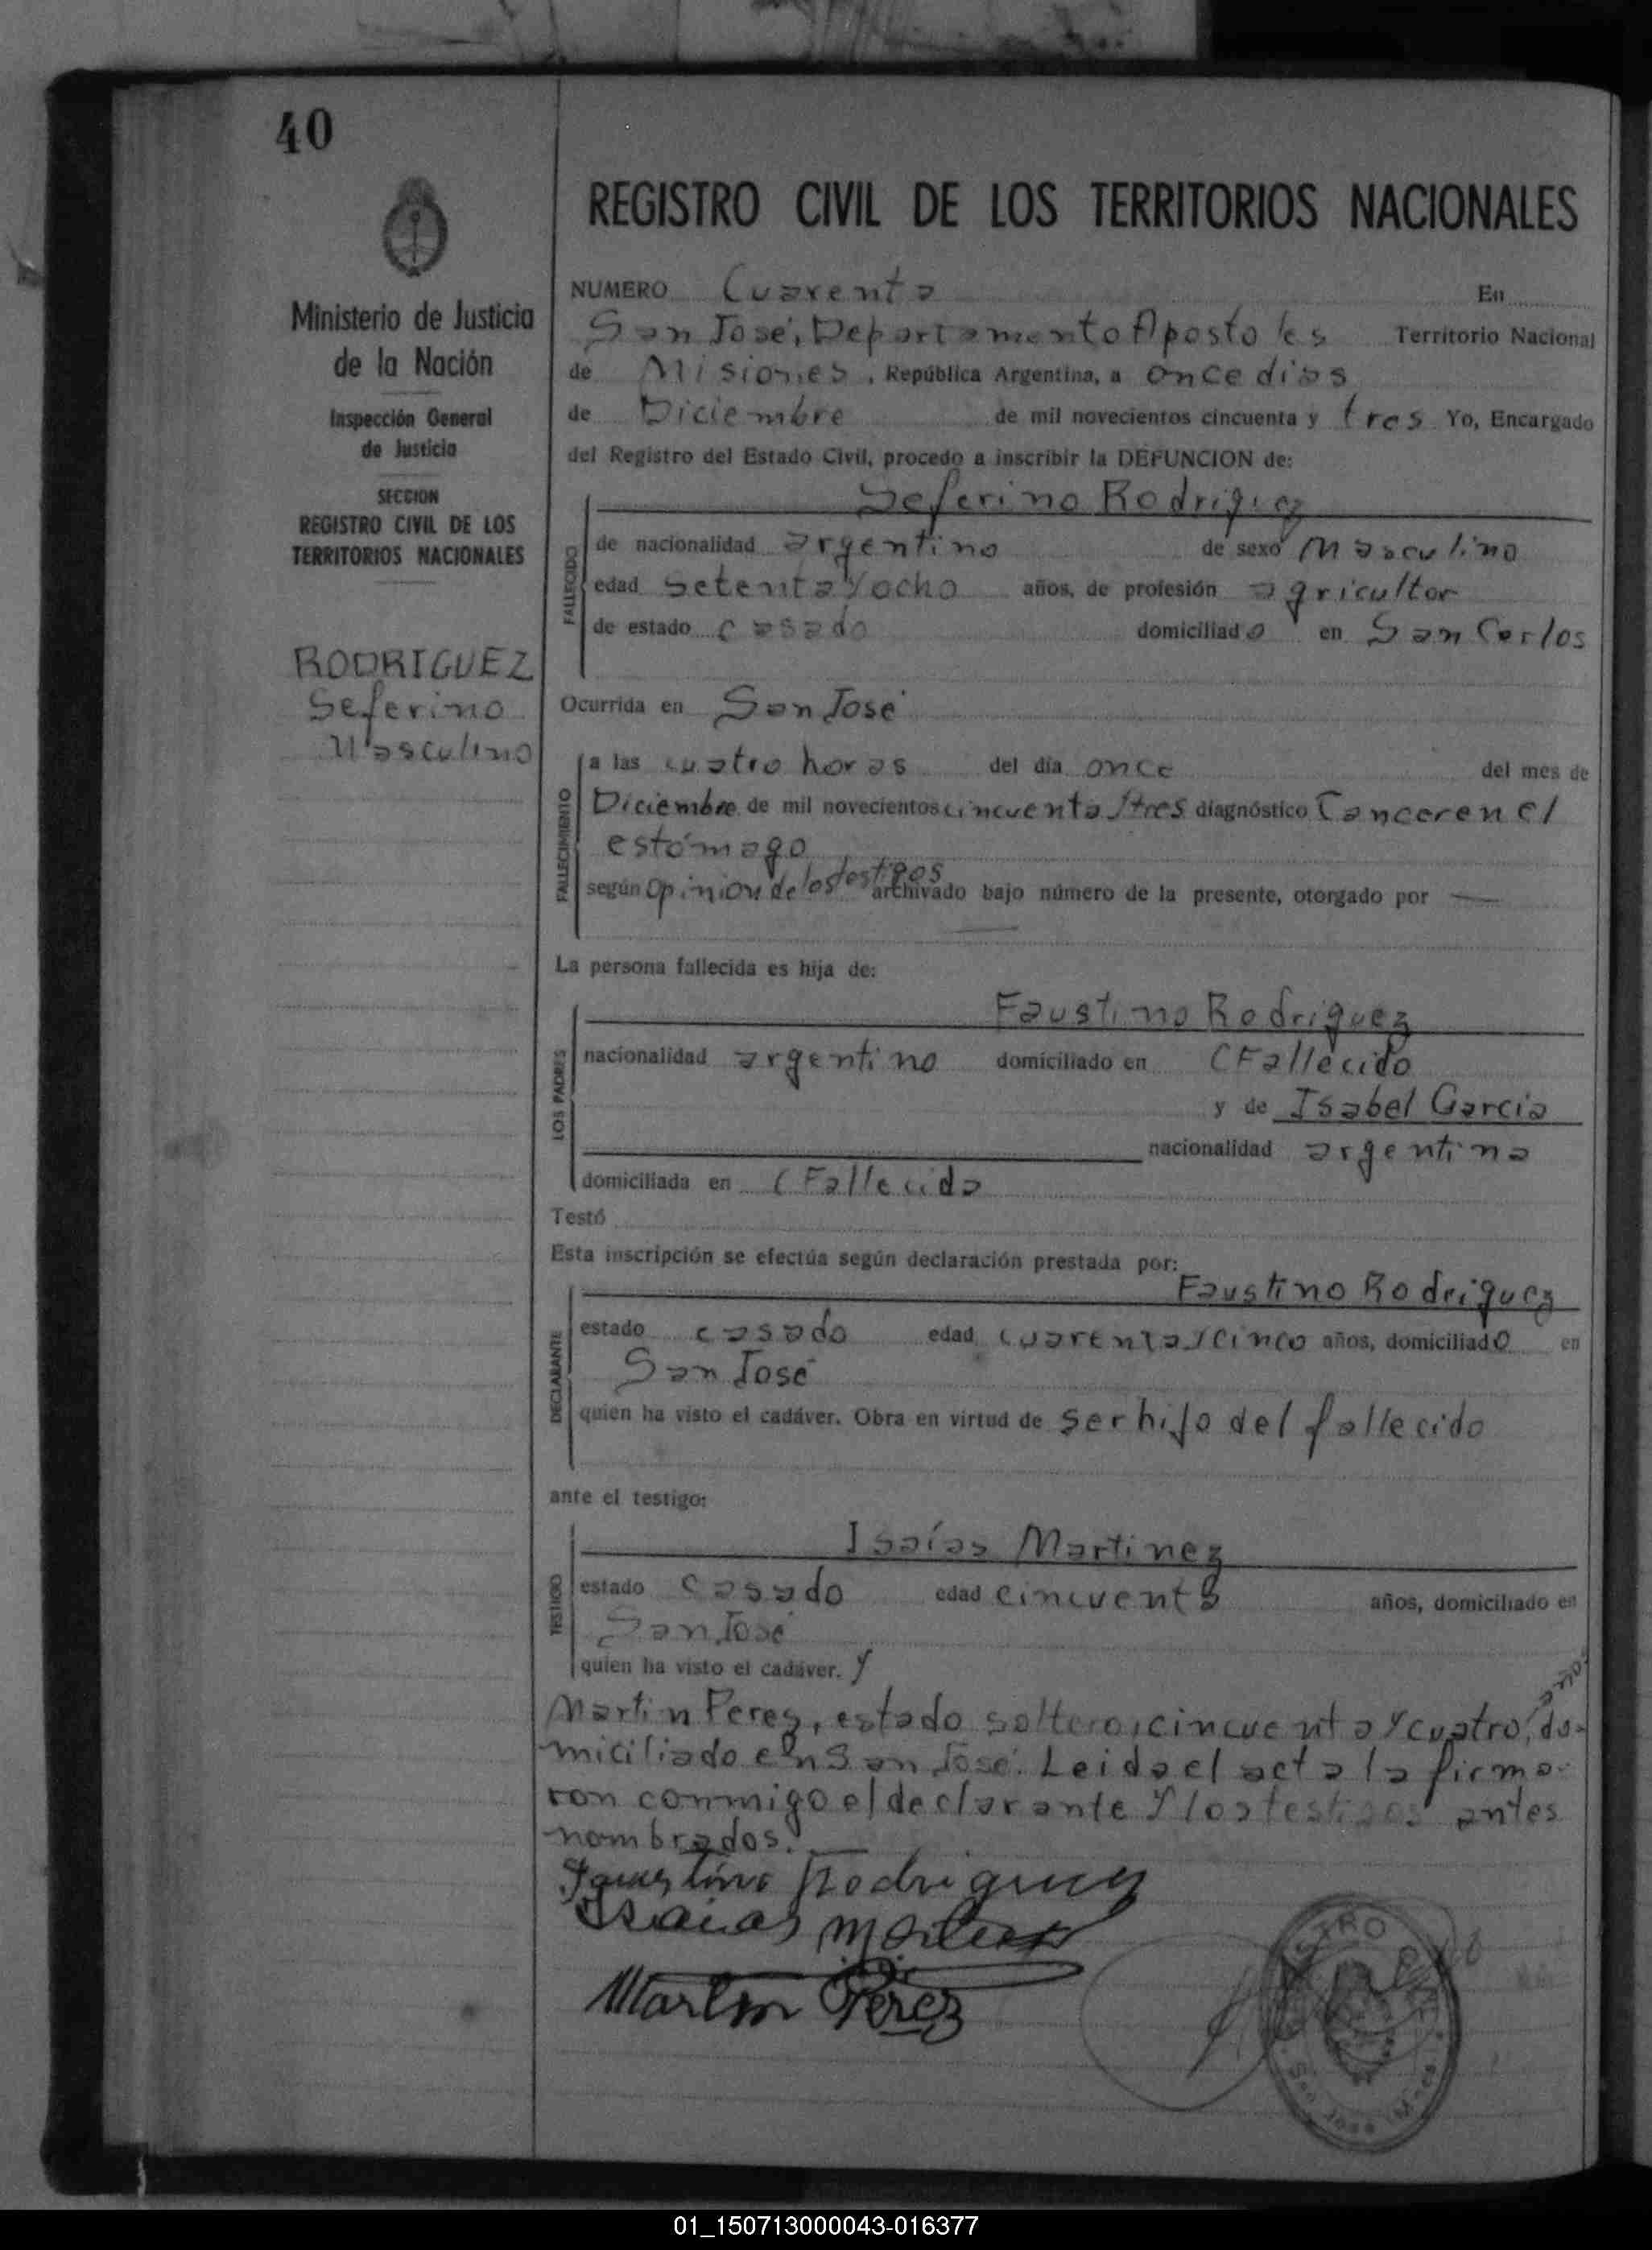 40
REGISTRO CIVIL DE LOS TERRITORIOS NACIONALES
Ministerio de Justicia
de la Nación
Inspección General
de Justicia
SECCION
REGISTRO CIVIL DE LOS
TERRITORIOS NACIONALES
RODRIGUEZ
Seferino
Masculino
NUMERO Cuarenta En
San José, Departamento Apostoles Territorio Nacional
de Misiones, República Argentina, a once dias
de Diciembre de mil novecientos cincuenta y tres Yo, Encargado
del Registro del Estado Civil, procedo a inscribir la DEFUNCION de:
Seferino Rodriguez
FALLECIDO
de nacionalidad argentino de sexo Masculino
edad setenta y ocho años, de profesión agricultor
de estado casado domiciliado en San Carlos
Ocurrida en San José
FALLECIMIENTO
a las cuatro horas del día once del mes de
Diciembre de mil novecientos cincuenta y tres diagnóstico Cancer en el
estómago
según opinion de los testigos archivado bajo número de la presente, otorgado por —
La persona fallecida es hija de:
LOS PADRES
Faustino Rodriguez
nacionalidad argentino domiciliado en (Fallecido
y de Isabel Garcia
nacionalidad argentina
domiciliada en (Fallecida
Testó
Esta inscripción se efectúa según declaración prestada por:
DECLARANTE
Faustino Rodriguez
estado casado edad cuarenta y cinco años, domiciliado en
San José
quien ha visto el cadáver. Obra en virtud de ser hijo del fallecido
ante el testigo:
TESTIGO
Isaías Martinez
estado casado edad cincuenta años, domiciliado en
San José
quien ha visto el cadáver. y
Martin Perez, estado soltero, cincuenta y cuatro años, do-
miciliado en San José. Leida el acta la firma-
ron conmigo el declarante y los testigos antes
nombrados.
Faustino Rodriguez
Isaias Martinez
Martin Perez
San José
01_150713000043-016377